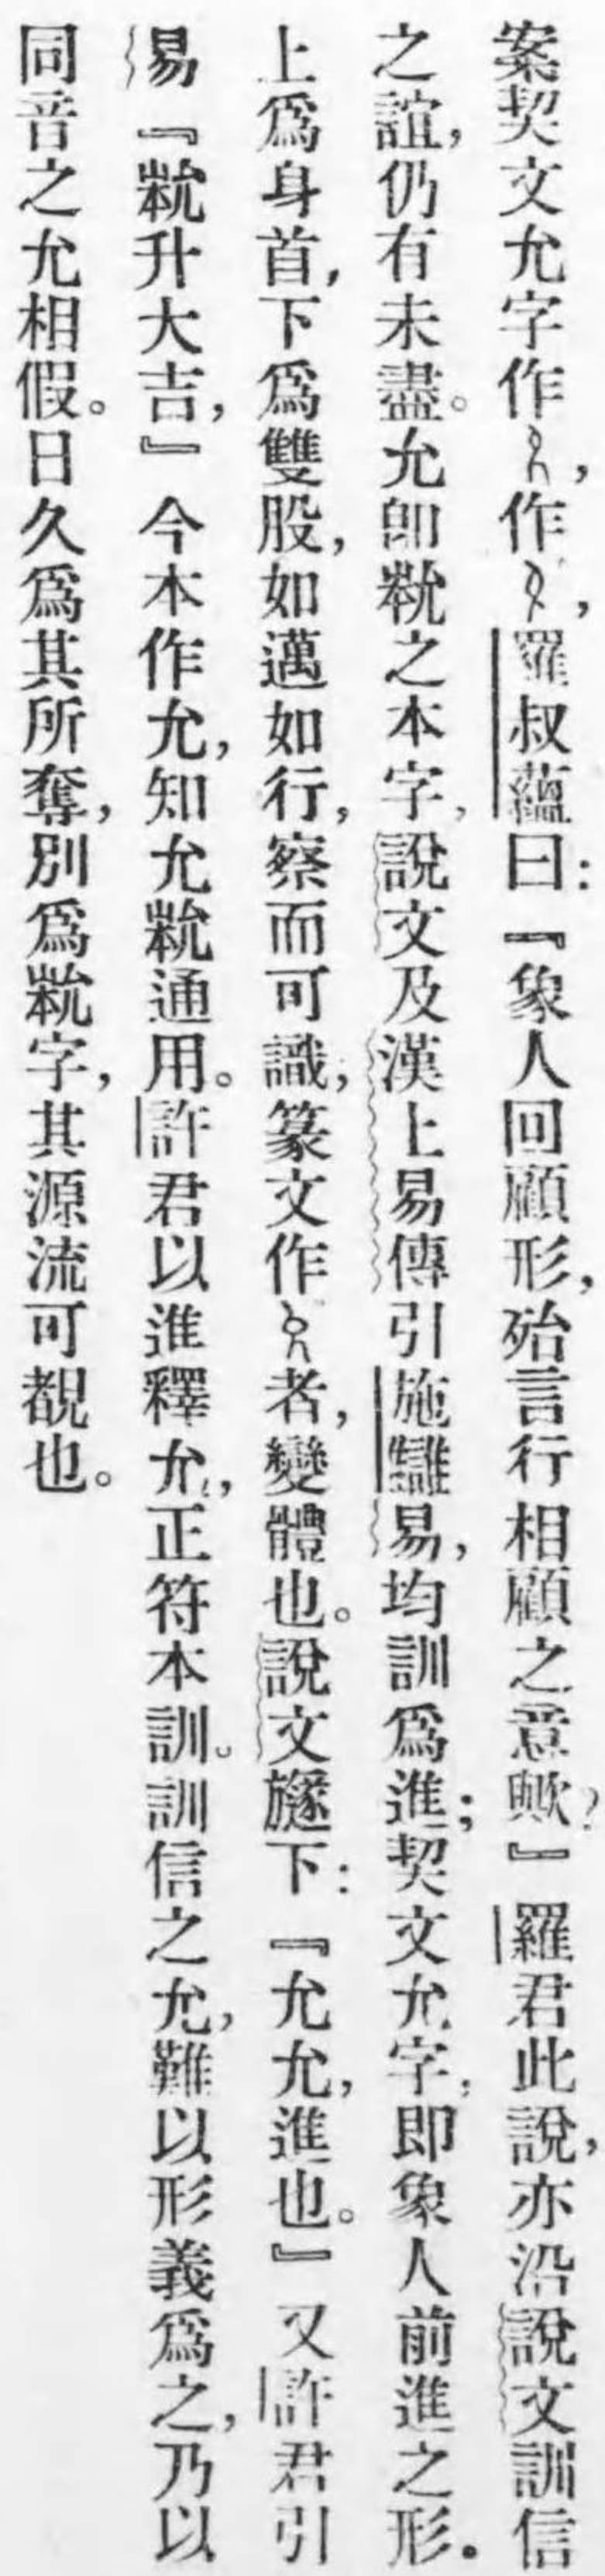 案契文允字作，作，羅叔蘊曰：『象人回顧形，殆言行相顧之意歟？』羅君此說，亦沿說文訓信
之誼，仍有未盡。允卽㽙之本字，說文及漢上易傳引施讎易，均訓爲進；契文允字，即象人前進之形。
上爲身首，下爲雙股，如邁如行，察而可識，篆文作者，變體也。說文旞下：『允允，進也。』又許君引
易『㽙升大吉，』今本作允，知允㽙通用。許君以進釋允，正符本訓。訓信之允，難以形義爲之，乃以
同音之允相假。日久爲其所奪，別爲㽙字，其源流可覩也。